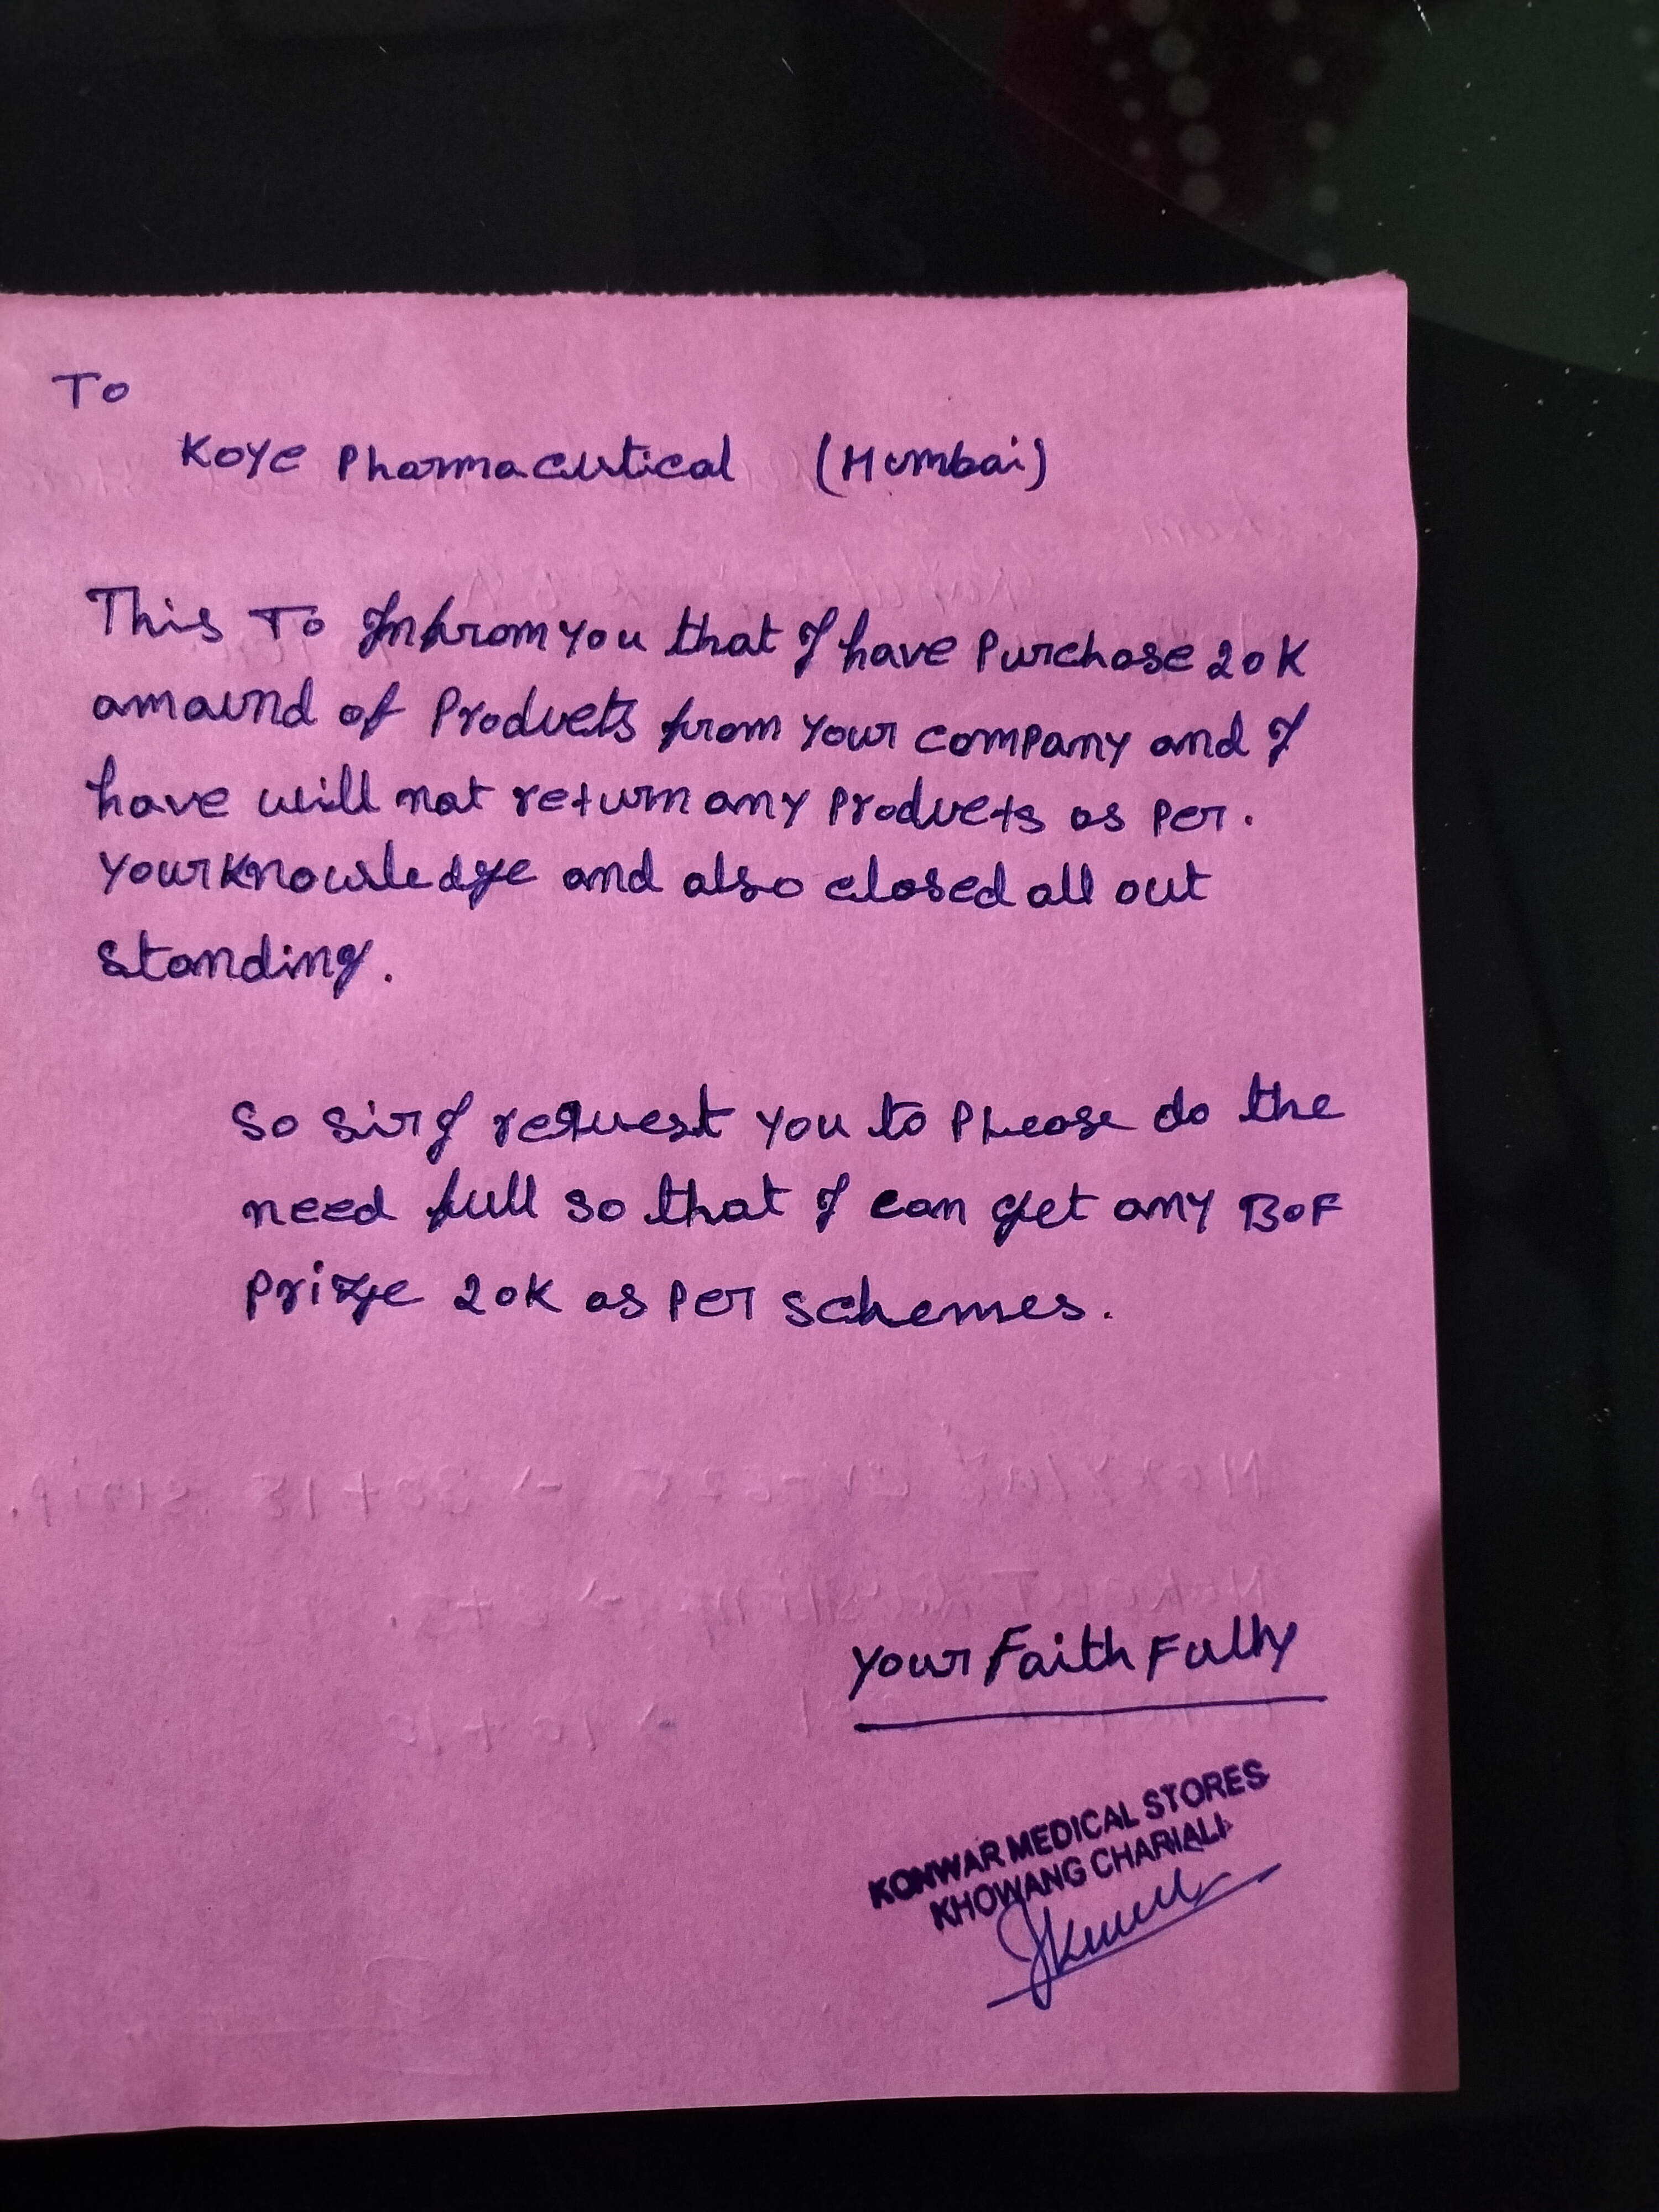 To
Koye Pharmaceutical (Mumbai)
This To Infrom you that I have Purchase 20K
amaund of Products from your company and I
have will not return any products as per.
your knowledge and also closed all out
standing.
So sir I request you to Please do the
need full so that I can get any BOF
Prizge 20K as per schemes.
Your Faith Fully
KONWAR MEDICAL STORES
KHOWANG CHARIALI